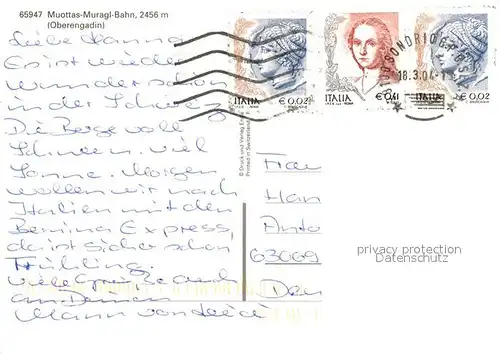 65947 Muottas-Muragl-Bahn, 2456 m
(Oberengadin)
Liebe Hanna
Es ist wieder
wunderschön
in der Schweiz
Die Berge voll
Schnee. viel
Sonne. Morgen
wollen wir nach
Italien mit den
Bernina Express,
da ist sicher schon
Frühling.
viele Grüße auch
an Deinen
Mann von
ITALIA
€ 0,02
ITALIA
€ 0,41
ITALIA
€ 0,02
SONDRIO
18.3.04
© Druck und Verlag
Printed in Switzerland
Frau
Han
Anto
63069
privacy protection
Datenschutz